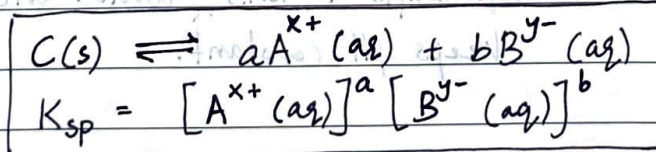 C(s) ⇌ aA^{x+} (aq) + bB^{y-} (aq)
K_{sp} = [A^{x+} (aq)]^a [B^{y-} (aq)]^b